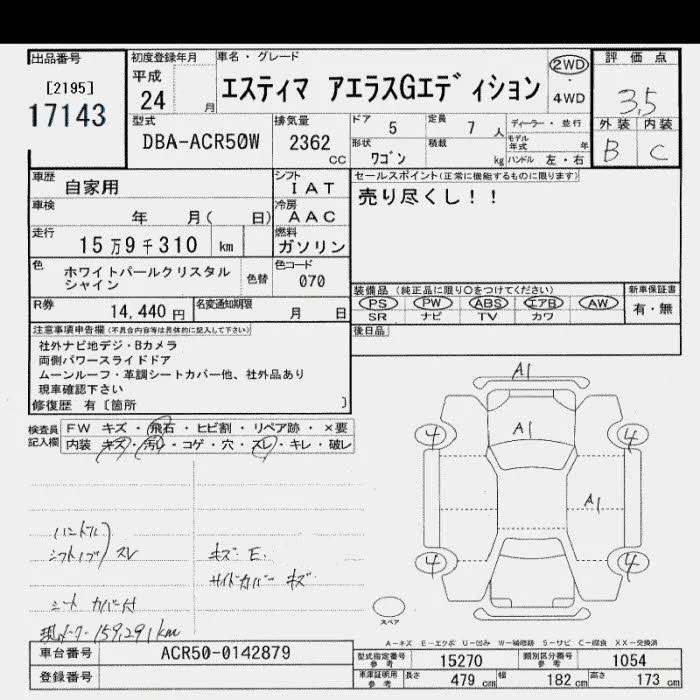 出品番号 初度登録年月 車名・グレード 評価点
[2195] 平成 エスティマ アエラスGエディション 2WD ・ 4WD 3,5
17143 24 月 外装 内装
型式 排気量 ドア 5 定員 7 人 ディーラー・並行 B C
DBA-ACR50W 2362 cc 形状 ワゴン 積載 kg モデル年式 年
ハンドル 左・右
車歴 自家用 シフト IAT セールスポイント(正常に機能するものに限ります)
車検 年 月( 日) 冷房 AAC 売り尽くし!!
走行 15万9千310 km 燃料 ガソリン
色 ホワイトパールクリスタル 色替 色コード
シャイン 070 装備品 (純正品に限り○をつけてください) 新車保証書
R券 14,440円 名変通知期限 月 日 PS PW ABS エアB AW 有・無
SR ナビ TV カワ
注意事項申告欄(不具合内容等は具体的に記入して下さい) 後日品
社外ナビ地デジ・Bカメラ
両側パワースライドドア
ムーンルーフ・革調シートカバー他、社外品あり
現車確認下さい
修復歴 有〔箇所 〕
検査員 FW キズ・飛石・ヒビ割・リペア跡・×要
記入欄 内装 キズ・汚レ・コゲ・穴・スレ・キレ・破レ
A1
A1
4 4
A1
4 4
ハンドル
シフトノブ) スレ キズ E.
サイドカバー キズ
シート カバー付
現メーター 159,291km
スペア
A-キズ E-エクボ U-凹み W-補修跡 S-サビ C-腐食 XX-交換済
車台番号 ACR50-0142879 型式指定番号 参考 15270 類別区分番号 参考 1054
登録番号 車庫証明用 参考 長さ 479 cm 幅 182 cm 高さ 173 cm